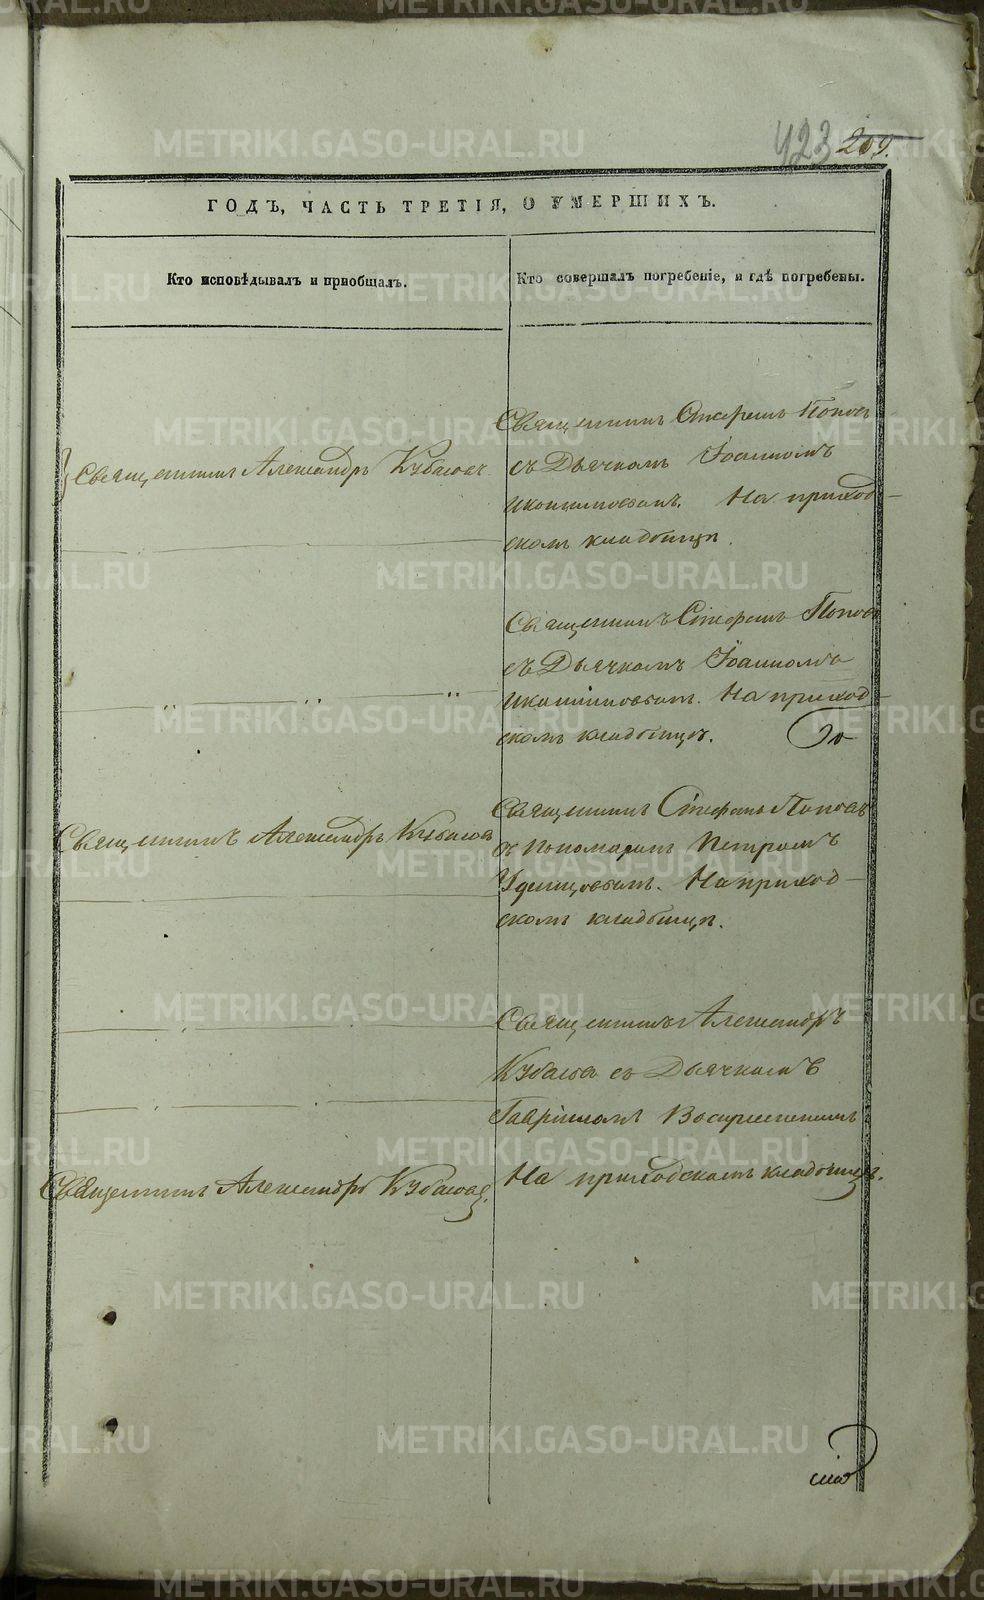 423 209.
ГОДЪ, ЧАСТЬ ТРЕТІЯ, О УМЕРШИХЪ.
Кто исповѣдывалъ и пріобщалъ.
Кто совершалъ погребеніе, и гдѣ погребены.
Священникъ Александръ Кубасовъ
Священникъ Стефанъ Поповъ
съ Дьячкомъ Іоанномъ
На приход-
скомъ кладбищѣ.
Священникъ Стефанъ Поповъ
съ Дьячкомъ Іоанномъ
На приход-
скомъ кладбищѣ.
Священникъ Александръ Кубасовъ
Священникъ Стефанъ Поповъ
съ Пономаремъ Петромъ
Удинцовымъ. На приход-
скомъ кладбищѣ.
Священникъ Александръ
Кубасовъ съ Дьячкомъ
Гавріиломъ Воскресенскимъ
На приходскомъ кладбищѣ.
Священникъ Александръ Кубасовъ.
METRIKI.GASO-URAL.RU